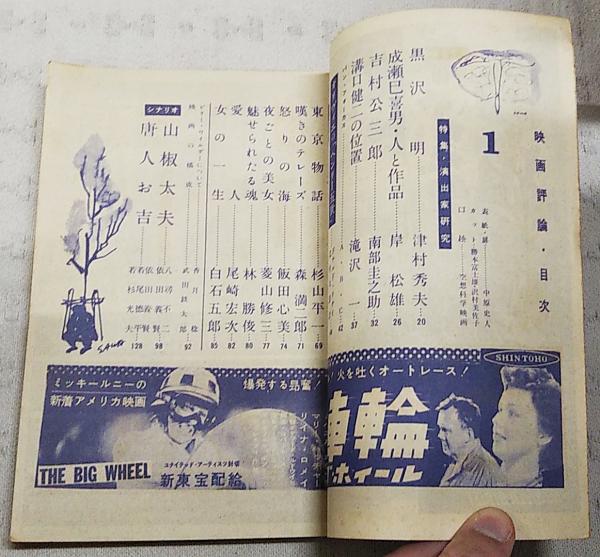 映画評論・目次
表紙・扉 中原史人
カット 勝本富士雄・沢村美佐子
口絵 空想科学映画
1
特集・演出家研究
黒沢明 津村秀夫 20
成瀬巳喜男・人と作品 岸松雄 26
吉村公三郎 南部圭之助 32
溝口健二の位置 滝沢一 37
東京物語 杉山平一 69
嘆きのテレーズ 森満二郎 71
怒りの海 飯田心美 74
夜ごとの美女 菱山修三 77
魅せられたる魂 林勝俊 80
愛人 尾崎宏次 82
女の一生 白石五郎 85
ビリー・ワイルダーについて 香月稔
映画の構成 武田鉄太郎 92
シナリオ
山椒太夫 八尋不二 依田義賢 98
唐人お吉 依田義賢 若杉光夫 若尾徳平 128
SHINTOHO
火を吐くオートレース!
ミッキールニーの
新着アメリカ映画
爆発する昂奮!
輪
ホイール
THE BIG WHEEL
ユナイテッド・アーティスツ封切
新東宝配給